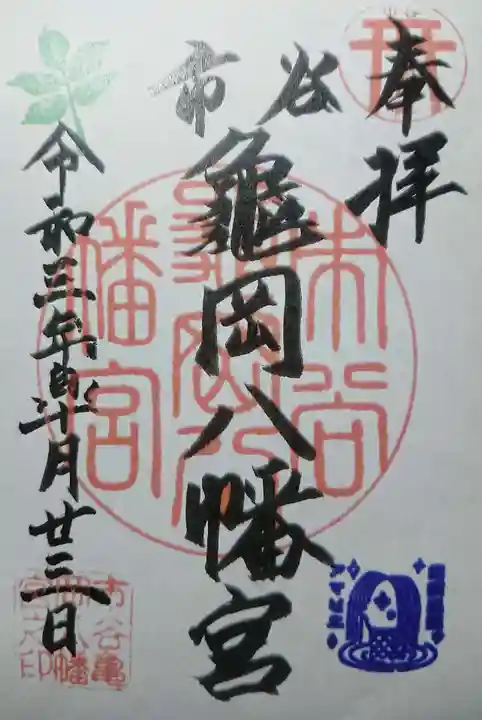 奉拝
市谷
亀岡八幡宮
令和三年 十月廿三日
市谷
亀岡八
幡宮
アマビエ
市谷亀
岡八幡
宮之印